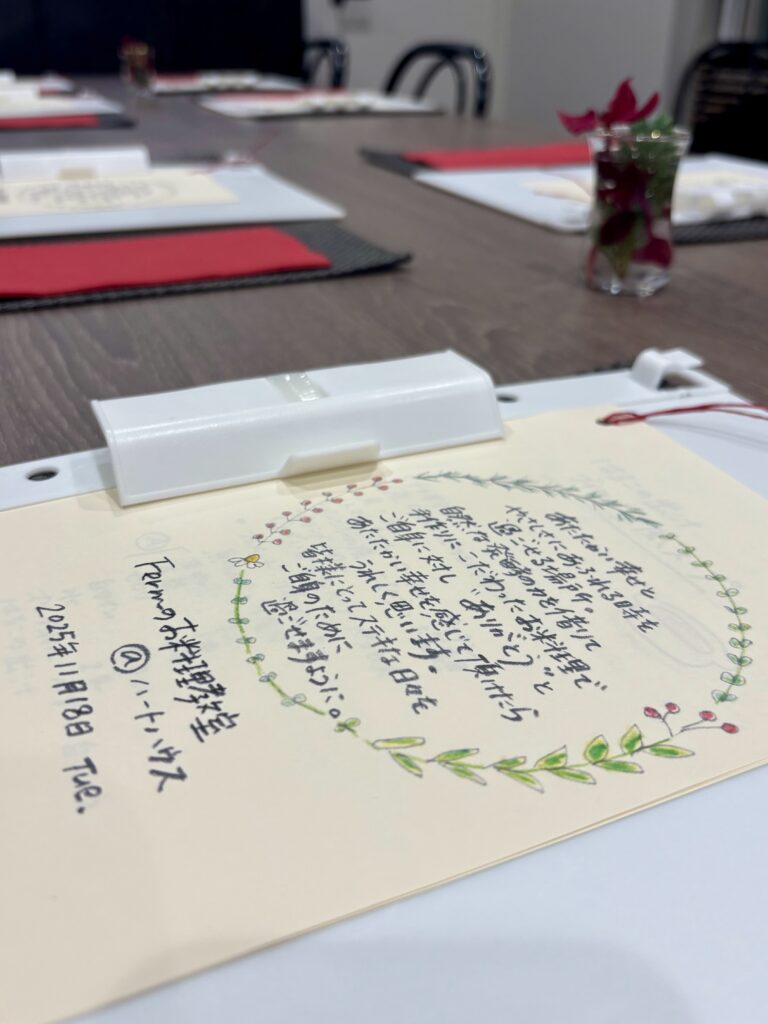 あたたかい幸せと
やさしさにあふれる日時を
過ごせる場所。
自然な発酵の力を借りて
手作りにこだわったお料理で
ご自身に対し "ありがとう" と
あたたかい幸せを感じて頂けたら
うれしく思います。
皆様にとってステキな日々を
ご自身のために
過ごせますように。
Fermのお料理教室
@ハートハウス
2025年11月18日 Tue.